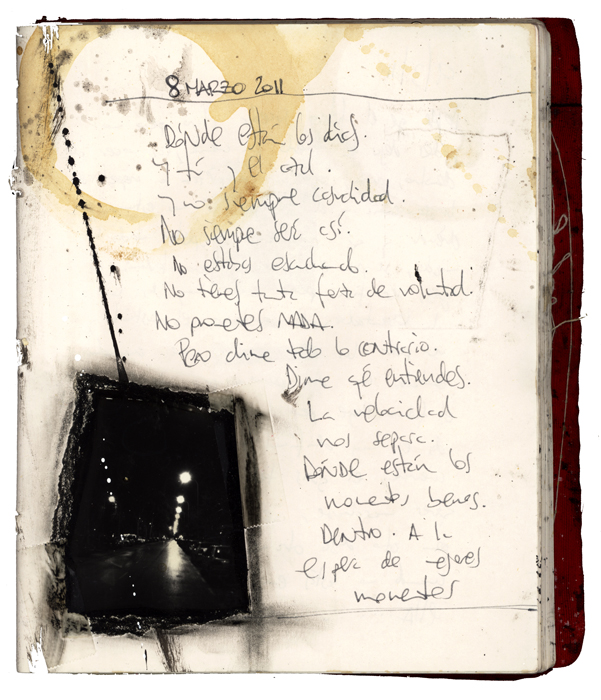 8 MARZO 2011
DÓNDE están los días.
y tú y el azul.
y no siempre
No siempre será así.
No estabas escuchando.
No tienes tanta fuerza de voluntad.
No prometes NADA.
Pero dime todo lo contrario.
Dime qé entiendes.
La velocidad
nos separa.
DÓNDE están los
momentos buenos.
Dentro. A la
espera de mejores
momentos